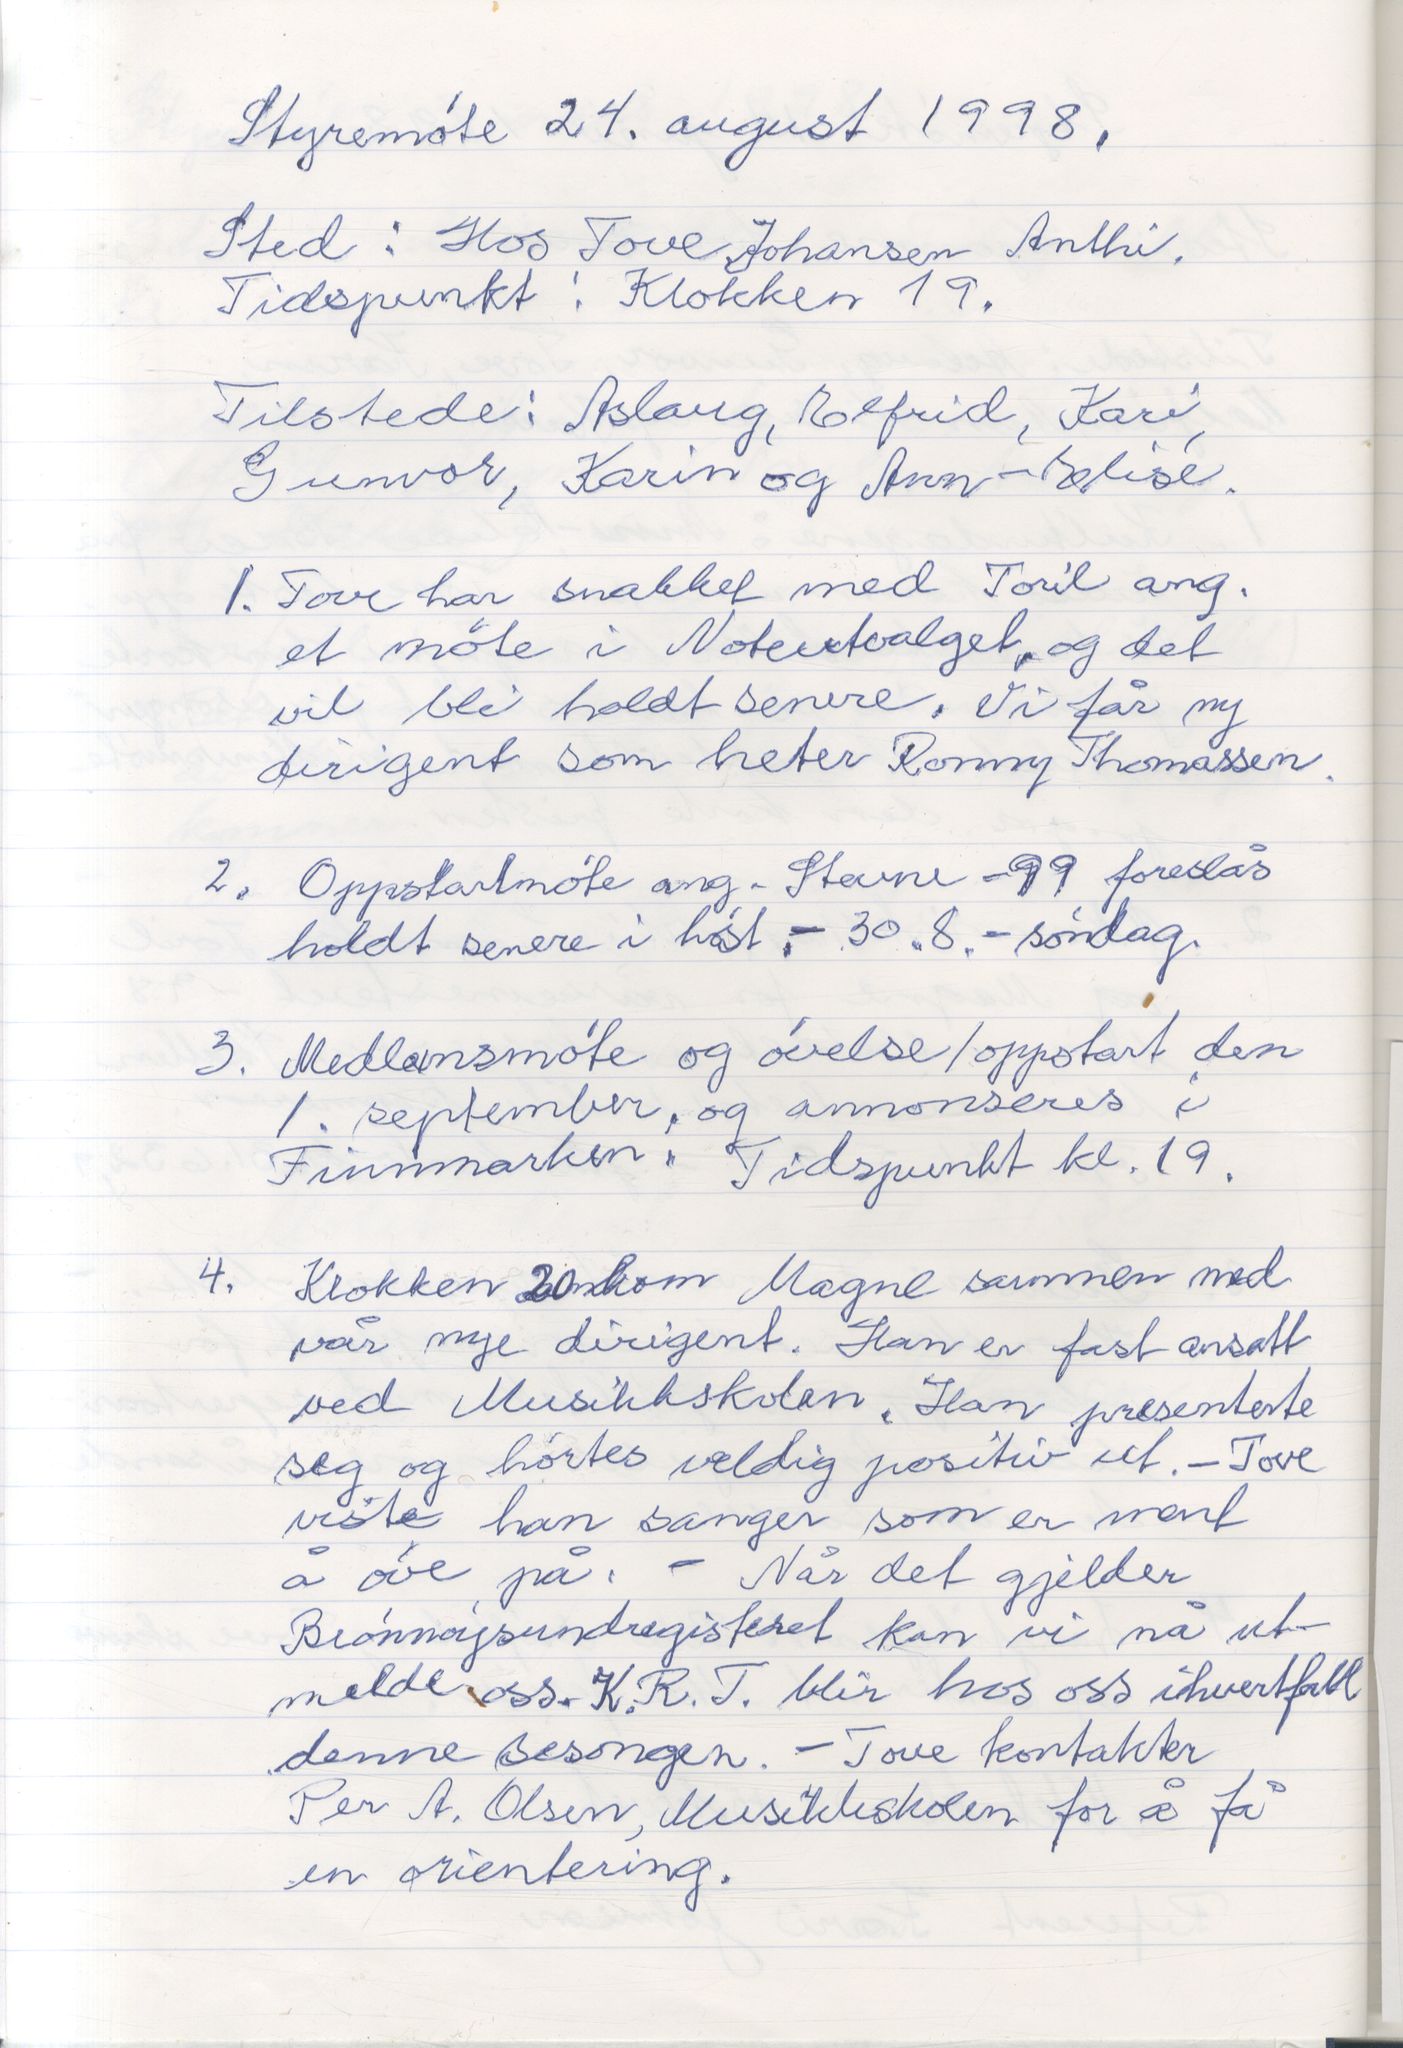 Styremöte 24. august 1998.
Sted: Hos Tove Johansen Anthi.
Tidspunkt: Klokken 19.
Tilstede: Aslaug, Elfrid, Kari,
Gunvor, Karin og Ann-Elise.
1. Tove har snakket med Toril ang.
et möte i Noteutvalget, og det
vil bli holdt senere. Vi får ny
dirigent som heter Ronny Thomassen.
2. Oppstartmöte ang. Stevne -99 foreslås
holdt senere i höst. - 30.8. - söndag.
3. Medlemsmöte og övelse/oppstart den
1. september, og annonseres i
Finnmarken. Tidspunkt kl. 19.
4. Klokken 20 kom Magne sammen med
vår nye dirigent. Han er fast ansatt
ved Musikkskolen. Han presenterte
seg og hörtes veldig positiv ut. - Tove
viste han sanger som er ment
å öve på. - Når det gjelder
Brönnöysundregisteret kan vi nå ut-
melde oss. K.R.T. blir hos oss ihvertfall
denne sesongen. - Tove kontakter
Per A. Olsen, Musikkskolen for å få
en orientering.